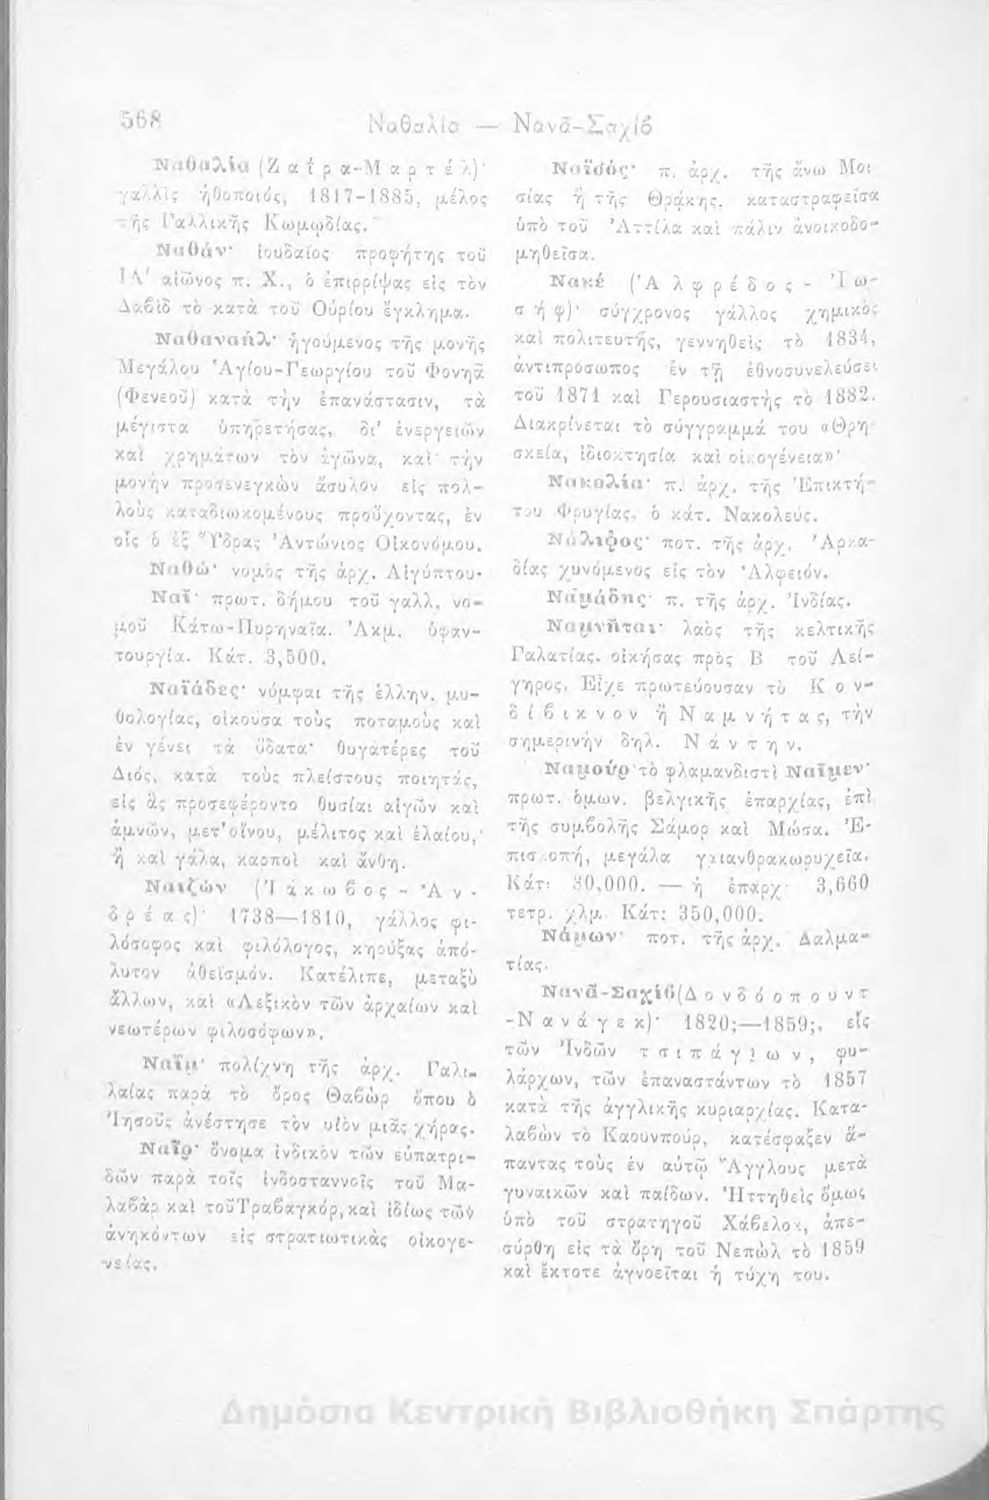 568
Ναθαλία — Νανᾶ-Σαχίβ
Ναθαλία (Ζαΐρα-Μαρτέλ)·
γαλλὶς ἠθοποιός, 1817-1885, μέλος
τῆς Γαλλικῆς Κωμῳδίας.
Ναθάν· ἰουδαῖος προφήτης τοῦ
ΙΑ' αἰῶνος π. Χ., ὁ ἐπιρρίψας εἰς τὸν
Δαβὶδ τὸ κατὰ τοῦ Οὐρίου ἔγκλημα.
Ναθαναήλ· ἡγούμενος τῆς μονῆς
Μεγάλου Ἁγίου-Γεωργίου τοῦ Φονηᾶ
(Φενεοῦ) κατὰ τὴν ἐπανάστασιν, τὰ
μέγιστα ὑπηρετήσας, δι' ἐνεργειῶν
καὶ χρημάτων τὸν ἀγῶνα, καὶ τὴν
μονὴν προσενεγκὼν ἄσυλον εἰς πολ-
λοὺς καταδιωκομένους προὔχοντας, ἐν
οἷς ὁ ἐξ Ὕδρας Ἀντώνιος Οἰκονόμου.
Ναθώ· νομὸς τῆς ἀρχ. Αἰγύπτου.
Ναΐ· πρωτ. δήμου τοῦ γαλλ. νο-
μοῦ Κάτω-Πυρηναῖα. Ἀκμ. ὑφαν-
τουργία. Κάτ. 3,500.
Ναϊάδες· νύμφαι τῆς ἑλλην. μυ-
θολογίας, οἰκοῦσα τοὺς ποταμοὺς καὶ
ἐν γένει τὰ ὕδατα· θυγατέρες τοῦ
Διός, κατὰ τοὺς πλείστους ποιητάς,
εἰς ἃς προσεφέροντο θυσίαι αἰγῶν καὶ
ἀμνῶν, μετ' οἴνου, μέλιτος καὶ ἐλαίου,
ἢ καὶ γάλα, καρποὶ καὶ ἄνθη.
Ναιζὼν (Ἰάκωβος - Ἀν-
δρέας)· 1738—1810, γάλλος φι-
λόσοφος καὶ φιλόλογος, κηρύξας ἀπό-
λυτον ἀθεϊσμόν. Κατέλιπε, μεταξὺ
ἄλλων, καὶ «Λεξικὸν τῶν ἀρχαίων καὶ
νεωτέρων φιλοσόφων».
Ναΐμ· πολίχνη τῆς ἀρχ. Γαλι-
λαίας παρὰ τὸ ὄρος Θαβὼρ ὅπου ὁ
Ἰησοῦς ἀνέστησε τὸν υἱὸν μιᾶς χήρας.
Ναΐρ· ὄνομα ἰνδικὸν τῶν εὐπατρι-
δῶν παρὰ τοῖς ἰνδοσταννοῖς τοῦ Μα-
λαβὰρ καὶ τοῦ Τραβαγκόρ, καὶ ἰδίως τῶν
ἀνηκόντων εἰς στρατιωτικὰς οἰκογε-
νείας.
Ναϊσός· π. ἀρχ. τῆς ἄνω Μοι
σίας ἢ τῆς Θρᾴκης, καταστραφεῖσα
ὑπὸ τοῦ Ἀττίλα καὶ πάλιν ἀνοικοδο-
μηθεῖσα.
Νακέ (Ἀλφρέδος - Ἰω-
σήφ)· σύγχρονος γάλλος χημικὸς
καὶ πολιτευτής, γεννηθεὶς τὸ 1834,
ἀντιπρόσωπος ἐν τῇ ἐθνοσυνελεύσει
τοῦ 1871 καὶ Γερουσιαστὴς τὸ 1882.
Διακρίνεται τὸ σύγγραμμά του «Θρη-
σκεία, ἰδιοκτησία καὶ οἰκογένεια»·
Νακολία· π. ἀρχ. τῆς Ἐπικτή-
του Φρυγίας, ὁ κάτ. Νακολεύς.
Νάλιφος· ποτ. τῆς ἀρχ. Ἀρκα-
δίας χυνόμενος εἰς τὸν Ἀλφειόν.
Ναμάδης· π. τῆς ἀρχ. Ἰνδίας.
Ναμνῆται· λαὸς τῆς κελτικῆς
Γαλατίας, οἰκήσας πρὸς Β τοῦ Λεί-
γηρος. Εἶχε πρωτεύουσαν τὸ Κον-
δίβικνον ἢ Ναμνήτας, τὴν
σημερινὴν δηλ. Νάντην.
Ναμοὺρ τὸ φλαμανδιστὶ Ναΐμεν·
πρωτ. ὁμων. βελγικῆς ἐπαρχίας, ἐπὶ
τῆς συμβολῆς Σάμορ καὶ Μώσα. Ἐ-
πισκοπή, μεγάλα γαιανθρακωρυχεῖα.
Κάτ: 30,000. — ἡ ἐπαρχ 3,660
τετρ. χλμ. Κάτ: 350,000.
Νάμων· ποτ. τῆς ἀρχ. Δαλμα-
τίας.
Νανᾶ-Σαχίβ (Δονδόοπουντ
-Νανάγεκ)· 1820;—1859;, εἷς
τῶν Ἰνδῶν τσιπάγιων, φυ-
λάρχων, τῶν ἐπαναστάντων τὸ 1857
κατὰ τῆς ἀγγλικῆς κυριαρχίας. Κατα-
λαβὼν τὸ Καουνπούρ, κατέσφαξεν ἅ-
παντας τοὺς ἐν αὐτῷ Ἄγγλους μετὰ
γυναικῶν καὶ παίδων. Ἡττηθεὶς ὅμως
ὑπὸ τοῦ στρατηγοῦ Χάβελοκ, ἀπε-
σύρθη εἰς τὰ ὄρη τοῦ Νεπὼλ τὸ 1859
καὶ ἔκτοτε ἀγνοεῖται ἡ τύχη του.
Δημόσια Κεντρική Βιβλιοθήκη Σπάρτης